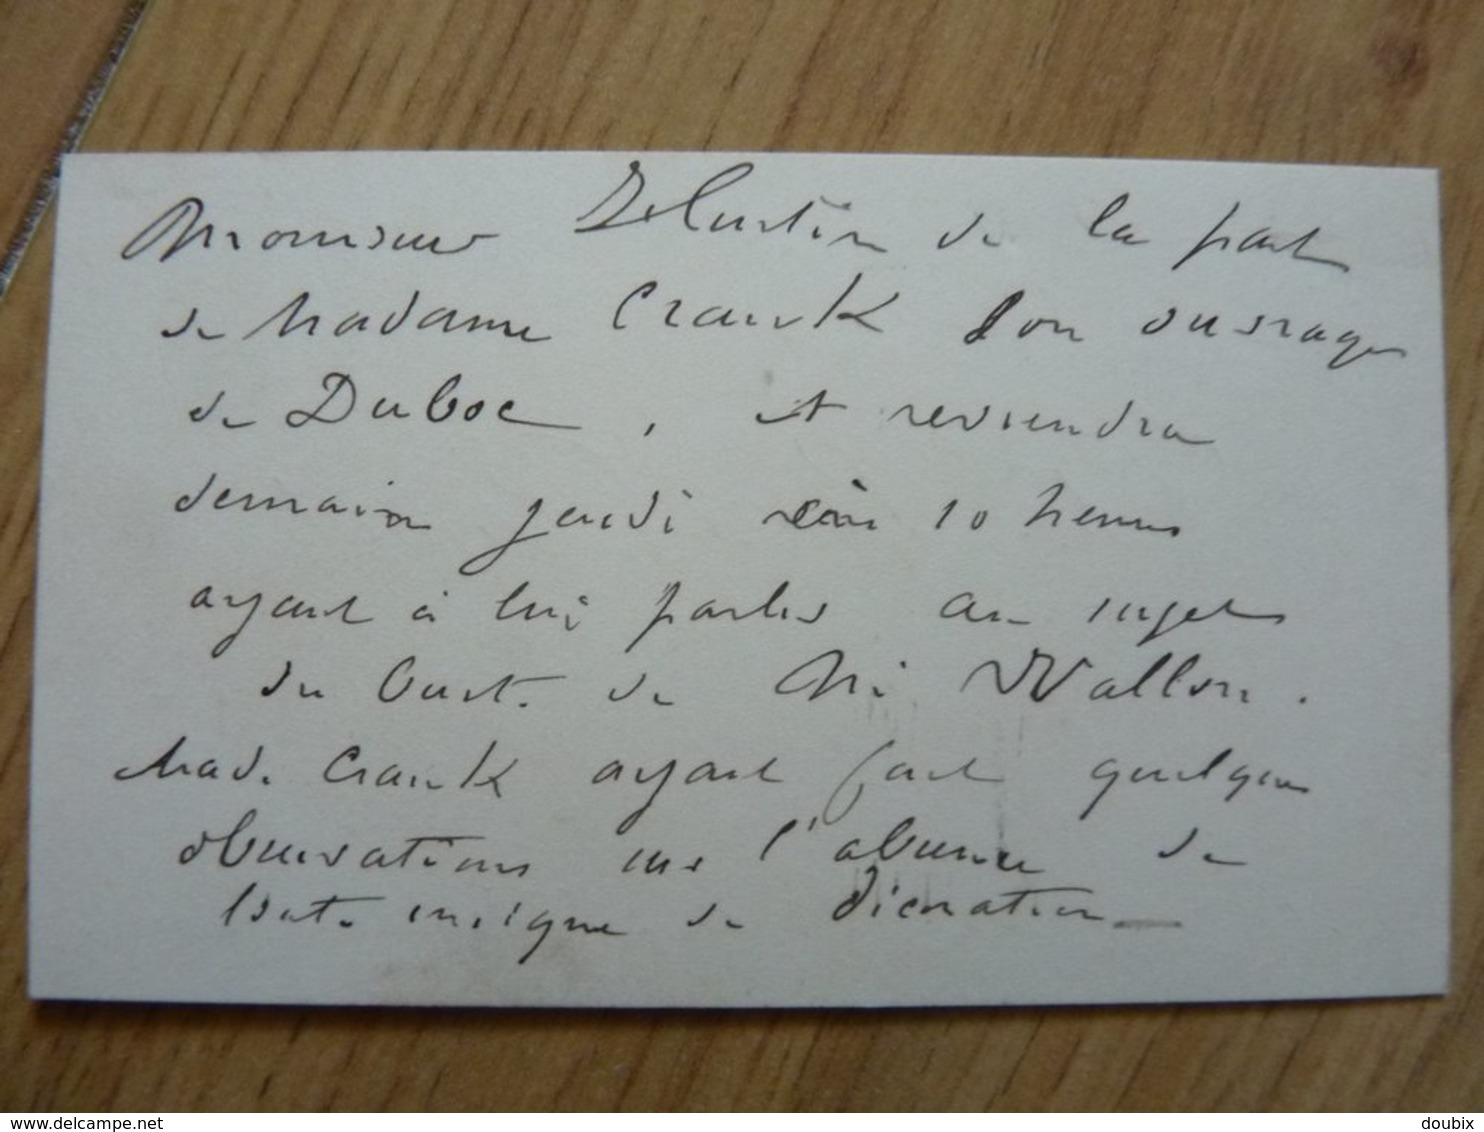 Monsieur de la part
de Madame Crauk son ouvrage
de Duboc, et reviendra
demain jeudi à 10 heures
ayant à lui parler au sujet
du bust. de Mr Wallon.
Mad. Crauk ayant fait quelques
observations sur l'absence de
tout. insigne de décoration
doubix